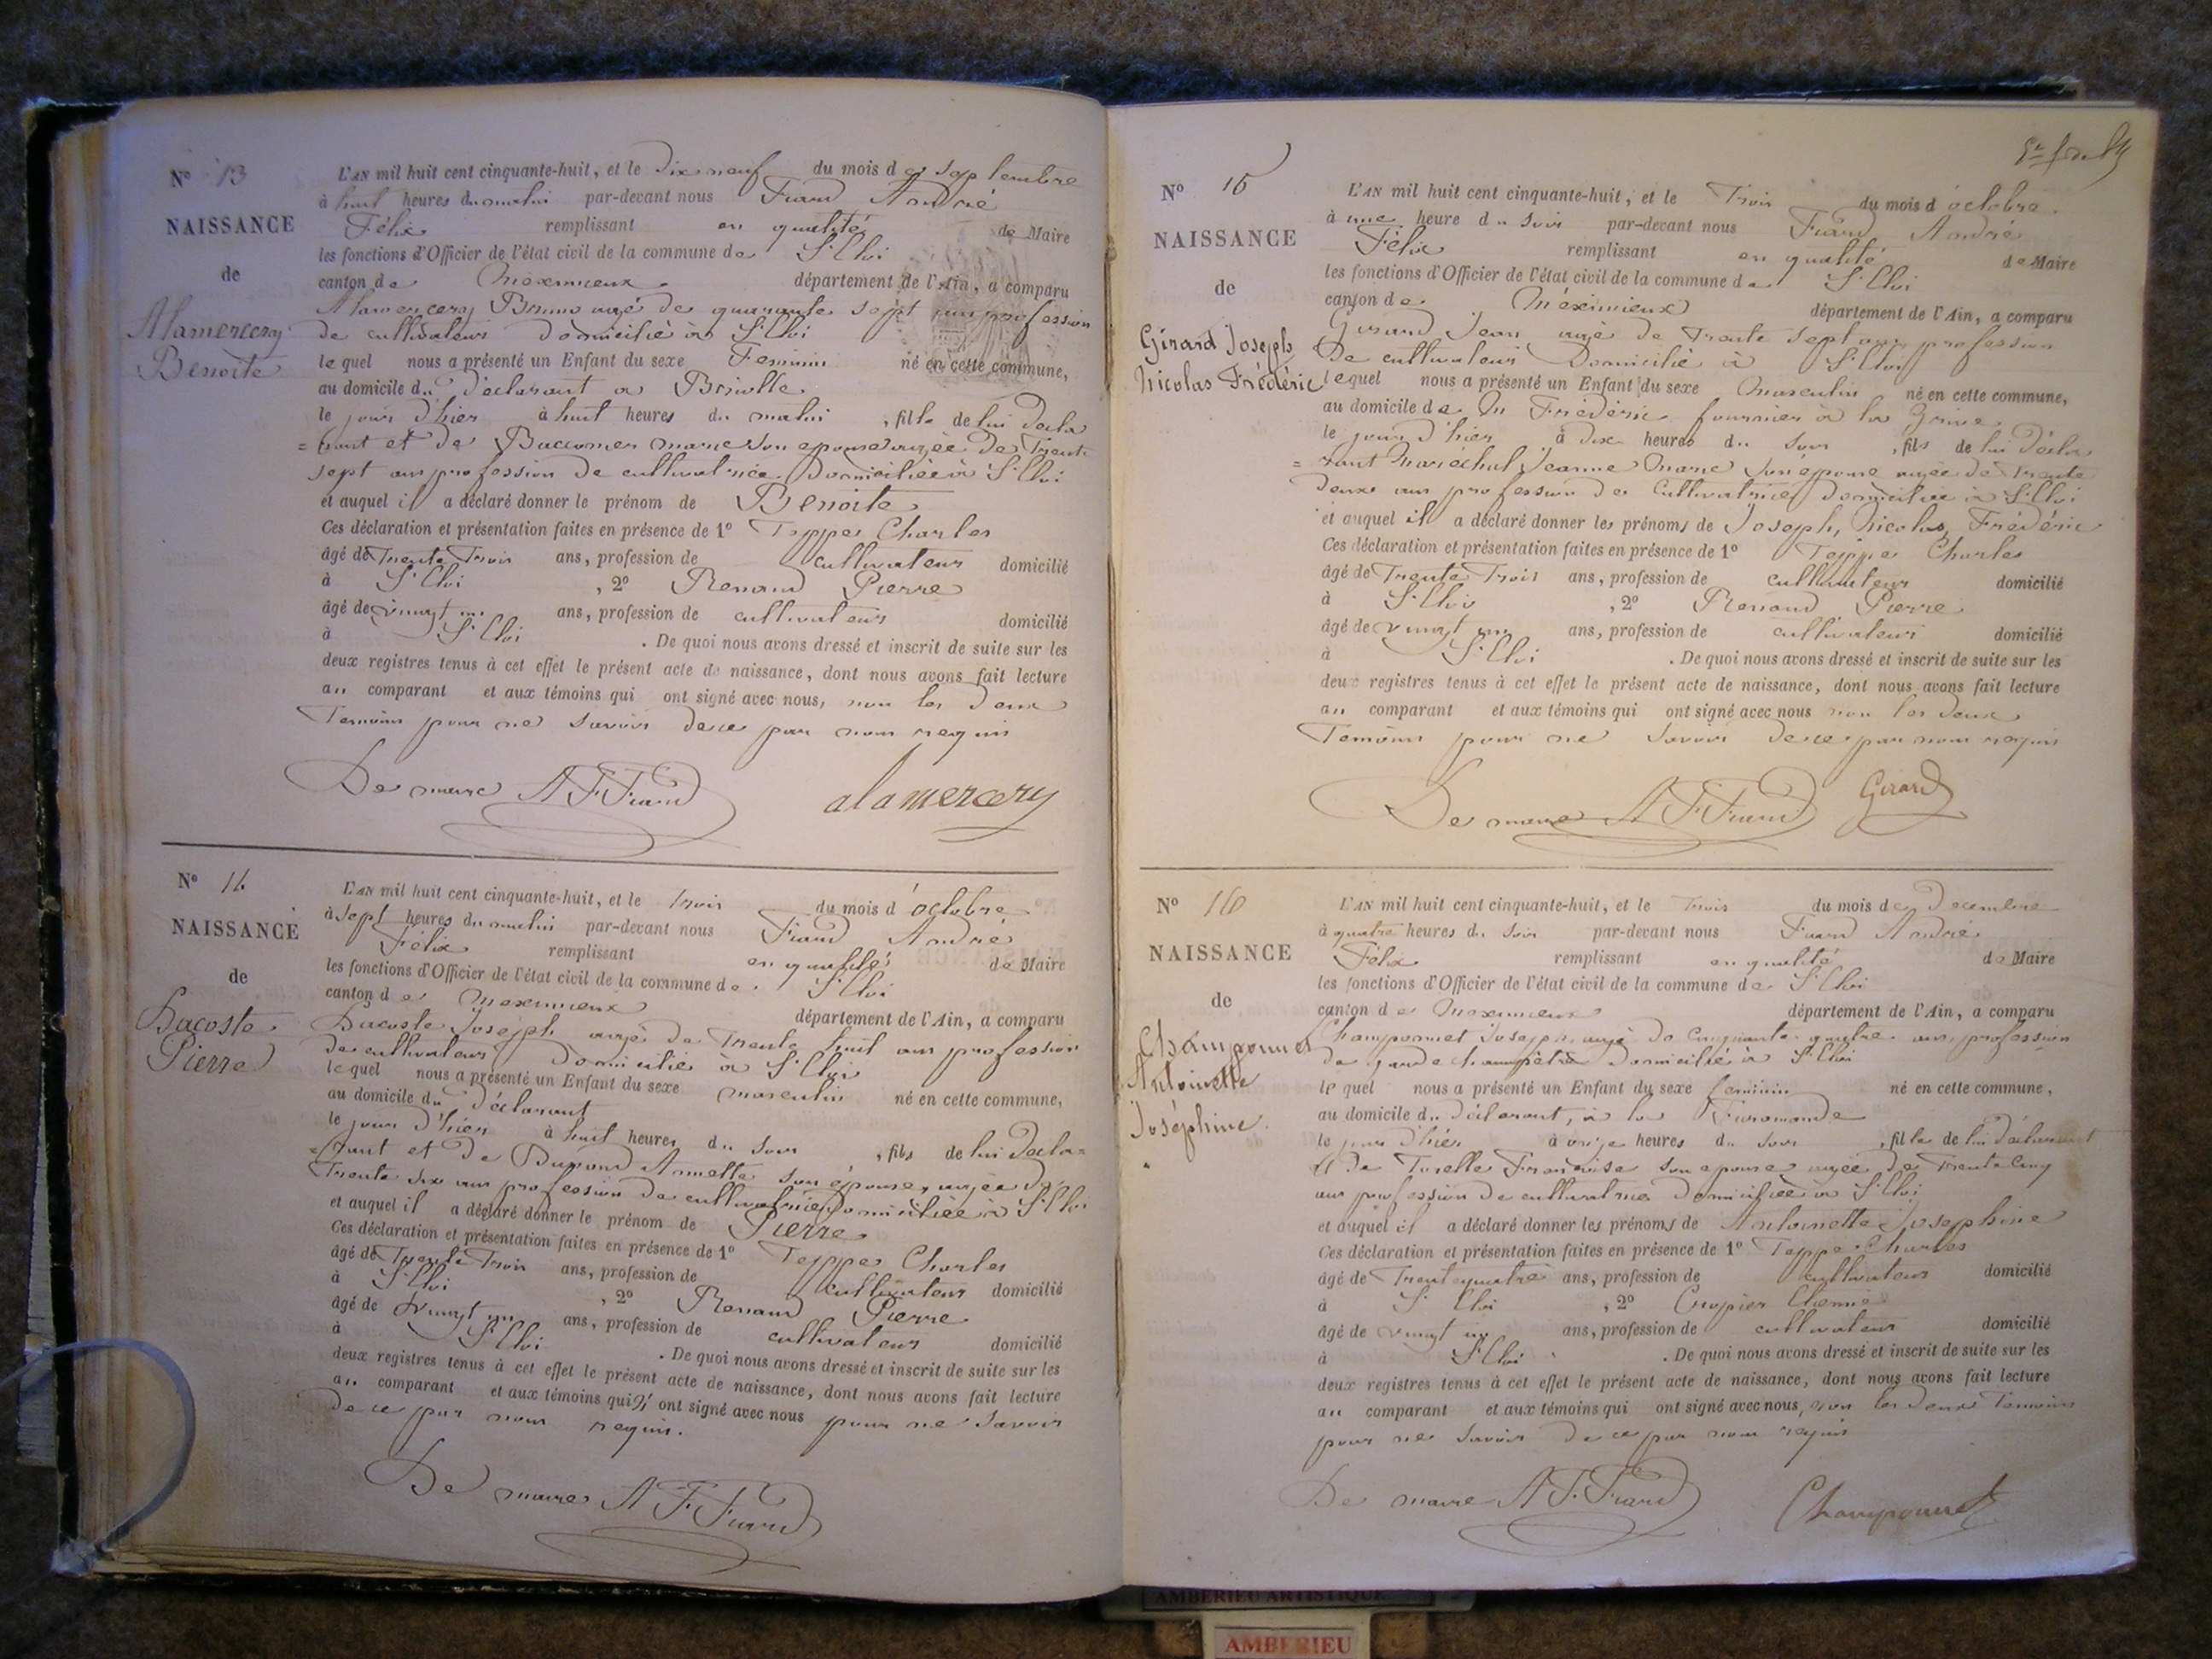 N° 13
NAISSANCE
de
Alamercery
Benoite
L'AN mil huit cent cinquante-huit, et le dix neuf du mois de septembre
à huit heures du matin par-devant nous Fiard André
Félix remplissant en qualité de Maire
les fonctions d'Officier de l'état civil de la commune de St Eloi
canton de Meximieux département de l'Ain, a comparu
Alamercery Bruno agé de quarante sept ans profession
de cultivateur domicilié à St Eloi
lequel nous a présenté un Enfant du sexe Feminin né en cette commune,
au domicile du déclarant a
le jour d'hier à huit heures du matin, fille de lui décla
=rant et de Baccomer marie son epouse agée de Trente
sept ans profession de cultivatrice domiciliée à St Eloi
et auquel il a déclaré donner le prénom de Benoite
Ces déclaration et présentation faites en présence de 1° Teppe Charles
âgé de Trente Trois ans, profession de cultivateur domicilié
à St Eloi, 2° Renaud Pierre
âgé de vingt un ans, profession de cultivateur domicilié
à St Eloi. De quoi nous avons dressé et inscrit de suite sur les
deux registres tenus à cet effet le présent acte de naissance, dont nous avons fait lecture
au comparant et aux témoins qui ont signé avec nous, non les deux
Temoins pour ne savoir de ce par nous requis
Le maire A F Fiard alamercery
N° 14
NAISSANCE
de
Lacoste
Pierre
L'AN mil huit cent cinquante-huit, et le trois du mois d'octobre
à sept heures du matin par-devant nous Fiard André
Félix remplissant en qualité de Maire
les fonctions d'Officier de l'état civil de la commune de St Eloi
canton de Meximieux département de l'Ain, a comparu
Lacoste Joseph agé de Trente huit ans profession
de cultivateur domicilié à St Eloi
lequel nous a présenté un Enfant du sexe masculin né en cette commune,
au domicile du déclarant
le jour d'hier à huit heures du soir, fils de lui décla=
=rant et de Dupond Annette son épouse, agée de
Trente six ans profession de cultivatrice domiciliée à St Eloi
et auquel il a déclaré donner le prénom de Pierre
Ces déclaration et présentation faites en présence de 1° Teppe Charles
âgé de Trente Trois ans, profession de cultivateur domicilié
à St Eloi, 2° Renaud Pierre
âgé de vingt un ans, profession de cultivateur domicilié
à St Eloi. De quoi nous avons dressé et inscrit de suite sur les
deux registres tenus à cet effet le présent acte de naissance, dont nous avons fait lecture
au comparant et aux témoins qui n'ont signé avec nous pour ne savoir
de ce par nous requis.
Le maire A F Fiard
N° 15
NAISSANCE
de
Girard Joseph
Nicolas Frédéric
L'AN mil huit cent cinquante-huit, et le Trois du mois d'octobre
à une heure du soir par-devant nous Fiard André
Félix remplissant en qualité de Maire
les fonctions d'Officier de l'état civil de la commune de St Eloi
canton de Méximieux département de l'Ain, a comparu
Girard Jean agé de Trente sept ans profession
de cultivateur domicilié à St Eloi
lequel nous a présenté un Enfant du sexe masculin né en cette commune,
au domicile de Frédéric fournier à la
le jour d'hier à dix heures du soir, fils de lui décla
=rant Maréchal Jeanne Marie son epouse agée de Trente
deux ans profession de Cultivatrice domiciliée à St Eloi
et auquel il a déclaré donner les prénoms de Joseph, Nicolas, Frédéric
Ces déclaration et présentation faites en présence de 1° Teppe Charles
âgé de Trente Trois ans, profession de cultivateur domicilié
à St Eloi, 2° Renaud Pierre
âgé de vingt un ans, profession de cultivateur domicilié
à St Eloi. De quoi nous avons dressé et inscrit de suite sur les
deux registres tenus à cet effet le présent acte de naissance, dont nous avons fait lecture
au comparant et aux témoins qui ont signé avec nous non les deux
Temoins pour ne savoir de ce par nous requis
Le maire A F Fiard Girard
N° 16
NAISSANCE
de
Champonnet
Antoinette
Joséphine.
L'AN mil huit cent cinquante-huit, et le Trois du mois de Decembre
à quatre heures du soir par-devant nous Fiard André
Félix remplissant en qualité de Maire
les fonctions d'Officier de l'état civil de la commune de St Eloi
canton de Meximieux département de l'Ain, a comparu
Champonnet Joseph, agé de Cinquante quatre ans, profession
de garde champêtre domicilié à St Eloi
lequel nous a présenté un Enfant du sexe feminin né en cette commune,
au domicile du déclarant, à la
le jour d'hier à onze heures du soir, fille de lui déclarant
et de Torelle Françoise son epouse agée de Trente Cinq
ans profession de cultivatrice domiciliée à St Eloi
et auquel il a déclaré donner les prénoms de Antoinette Josephine
Ces déclaration et présentation faites en présence de 1° Teppe Charles
âgé de Trente quatre ans, profession de cultivateur domicilié
à St Eloi, 2° Cropier
âgé de vingt six ans, profession de cultivateur domicilié
à St Eloi. De quoi nous avons dressé et inscrit de suite sur les
deux registres tenus à cet effet le présent acte de naissance, dont nous avons fait lecture
au comparant et aux témoins qui ont signé avec nous, non les deux Temoins
pour ne savoir de ce par nous requis
Le maire A F Fiard Champonnet
AMBERIEU ARTISTIQUE
AMBERIEU